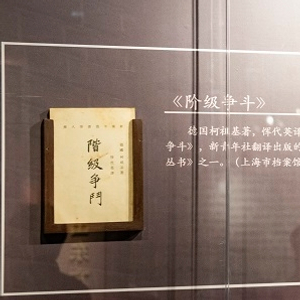 階級爭鬥
《阶级争斗》
德国柯祖基著，恽代英译
争斗》，新青年社翻译出版的
丛书》之一。（上海市档案馆